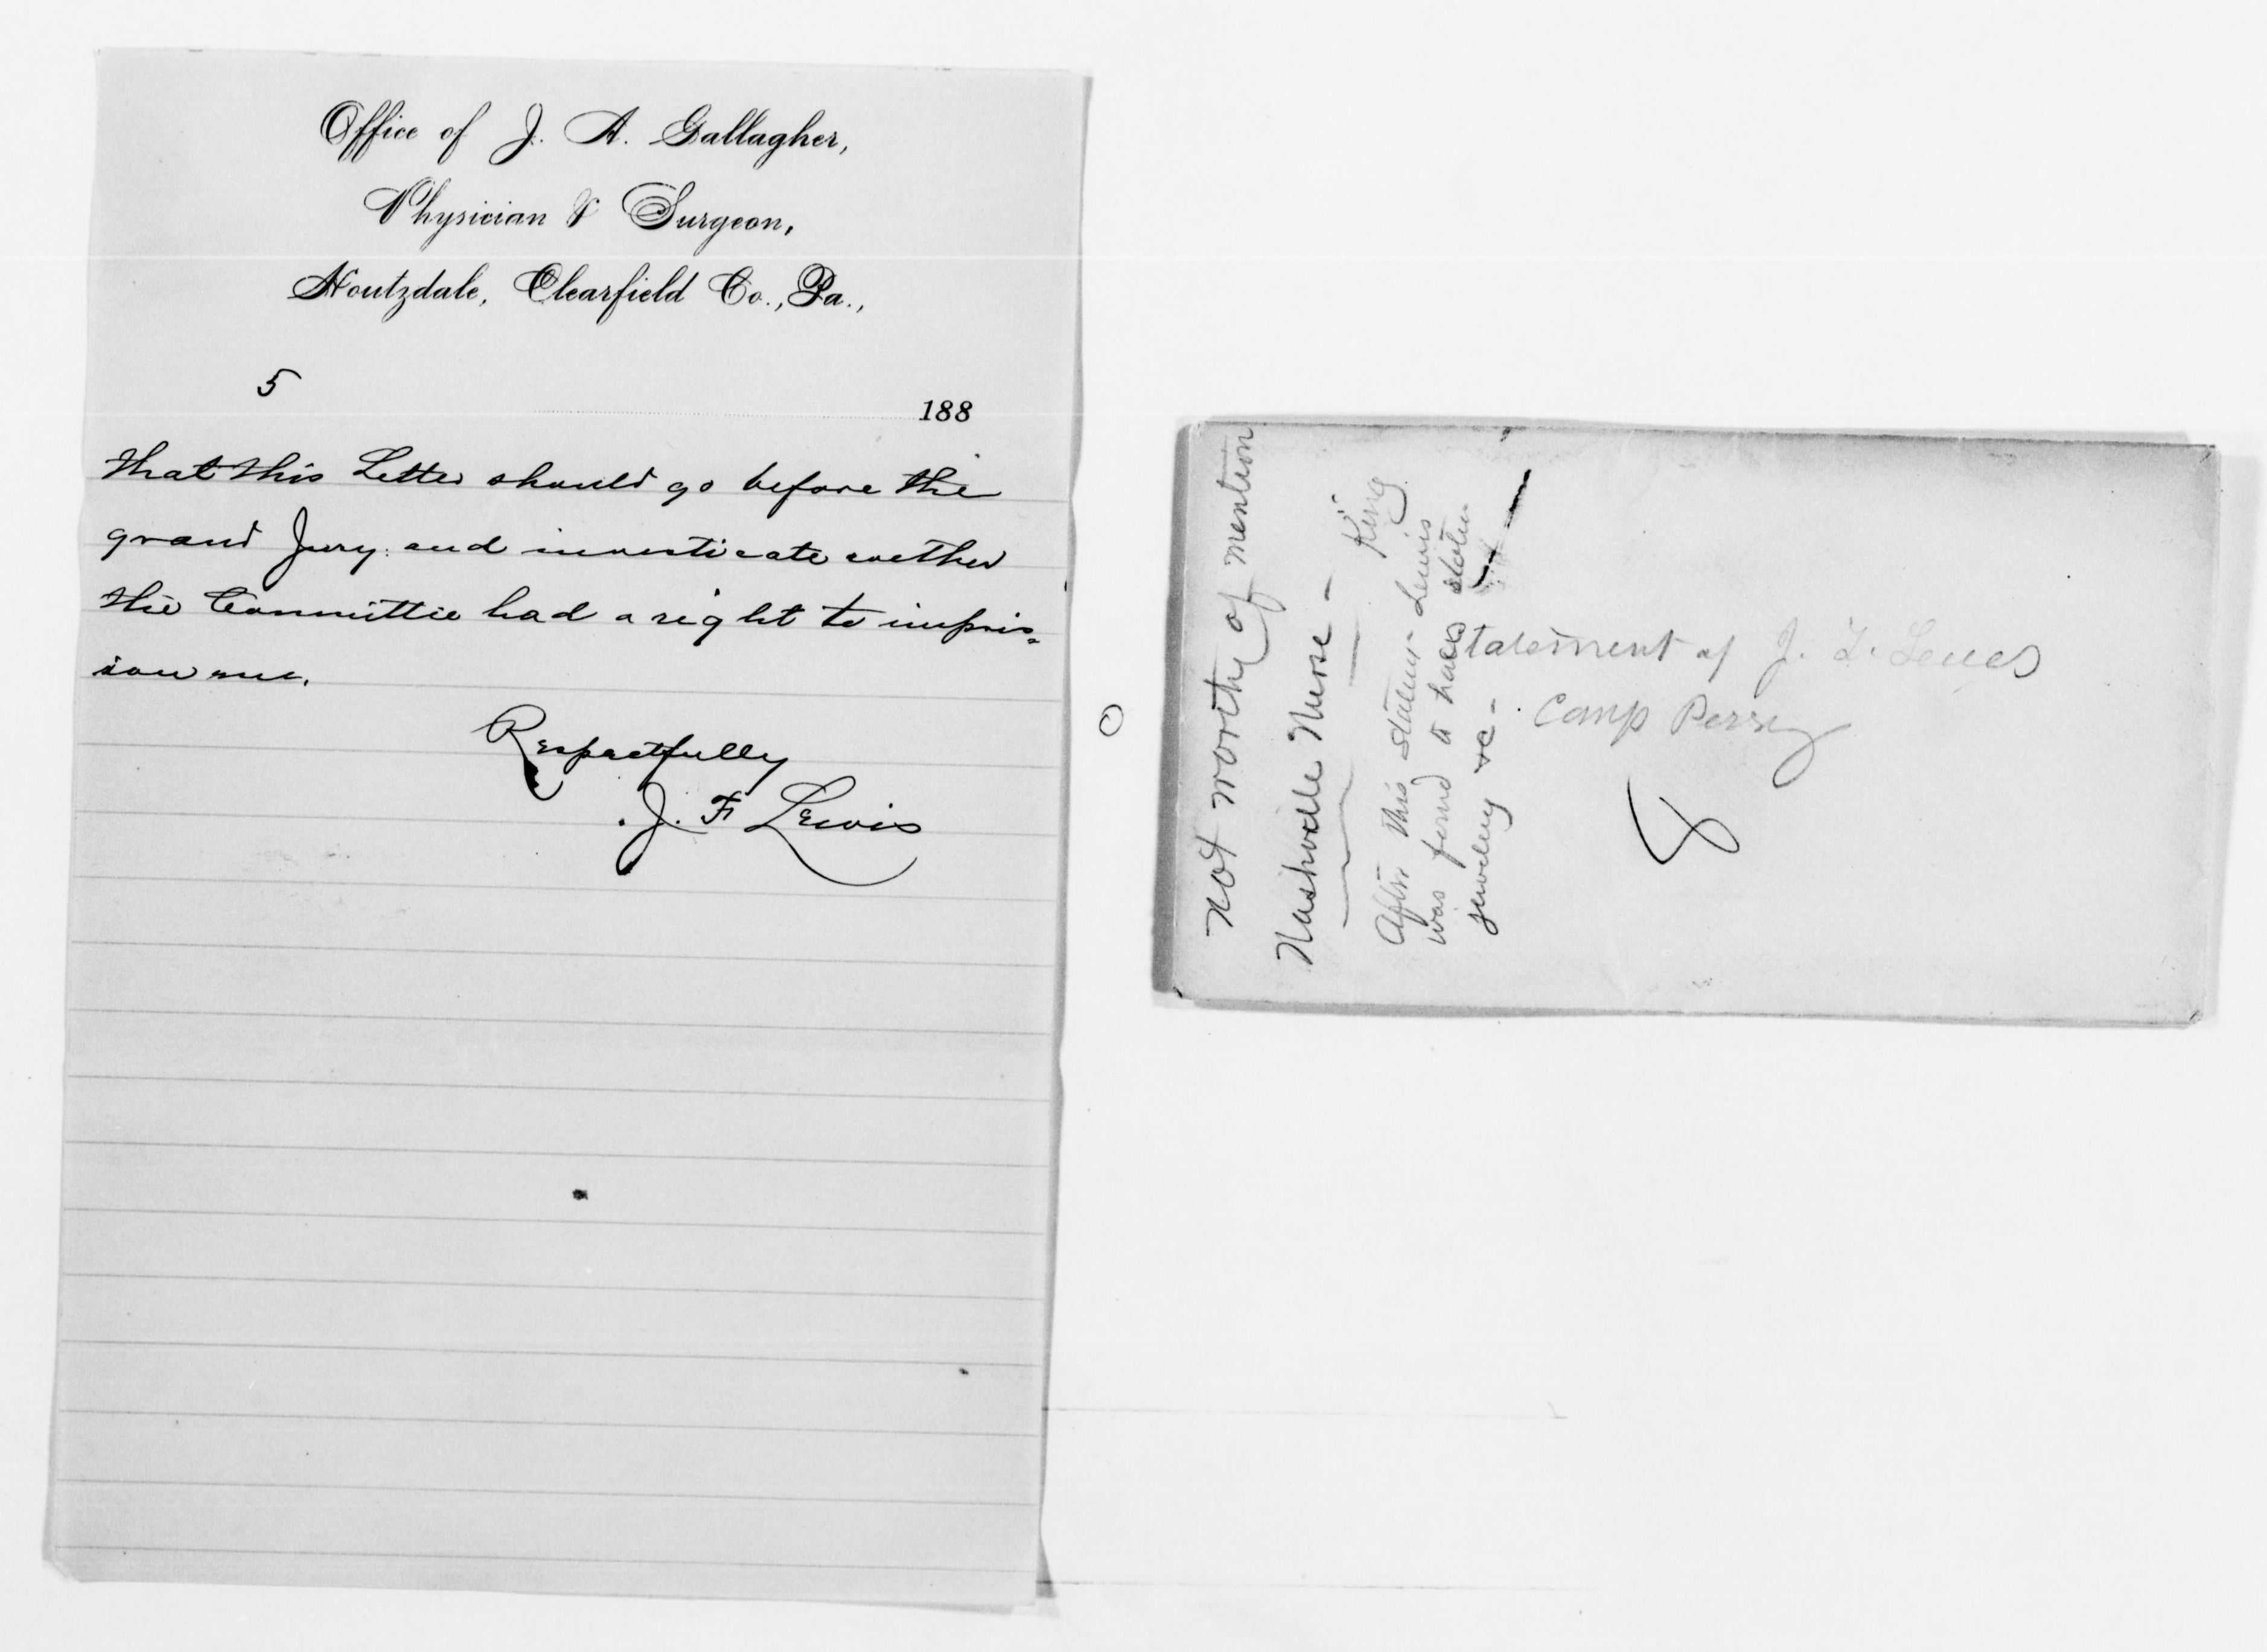 Office of J. A. Gallagher,
Physician & Surgeon,
Houtzdale, Clearfield Co., Pa.,
5
188
that this Letter should go before the
grand Jury. and investicate wether
the Committie had a right to impris=
ion me.
Respectfully
J. F Lewis
Not worthy of mention
Nashville Nurse - King
After this statem- Lewis
was found to have stolen
jewelery &c -
Statement of J. F. Lewes
Camp Perry
8